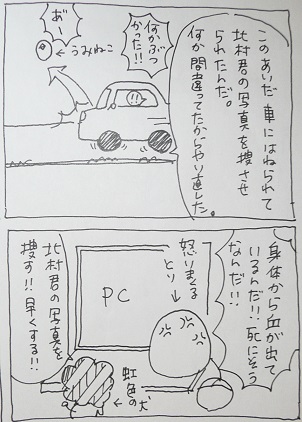 このあいだ車にはねられて
北村君の写真を捜させ
られたんだ。
何か間違ってたからやり直した。
何かぶつ
かった!!
!!
あ゛ー
←うみねこ
身体から血が出て
いるんだ!!死にそう
なんだ!!
怒りまくる
とり
PC
北村君の写真を
捜す!!早くする!!
虹色の犬